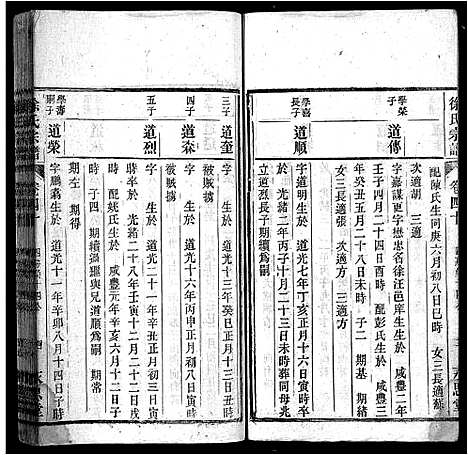 徐氏宗譜
卷四十
配陳氏生同庚六月初八日巳時 女三長適蘇
次適胡 三適
學榮子
道傳
字嘉謀更字懋忠名徐汪邑庠生生於 咸豐二年
壬子四月二十四日酉時 配彭氏生於 咸豐四
年癸丑五月二十八日未時 子二 期基 期續
女三長適張 次適 三適方
學喜長子
道順
字道明生於 道光七年丁亥正月十六日寅時
於 光緒二年丙子十月二十三日未時葬同母兆
立道烈長子期續為嗣
三子
道奎
字 生於 道光十三年癸巳正月二十日寅時
被賊擄
四子
道森
字 生於 道光十六年丙申正月初八日寅時
被賊擄
五子
道烈
字 生於 道光二十一年辛丑正月初三日寅時
於 光緒二十八年壬寅十二月二十一日未
時 配姚氏生於 咸豐元年辛亥六月十二日
時 子四 期續過繼與兄道順為嗣 期常
期左 期得
學壽嗣子
道榮
字鵬萬生於 道光十一年辛卯八月十四日子時
徐氏宗譜